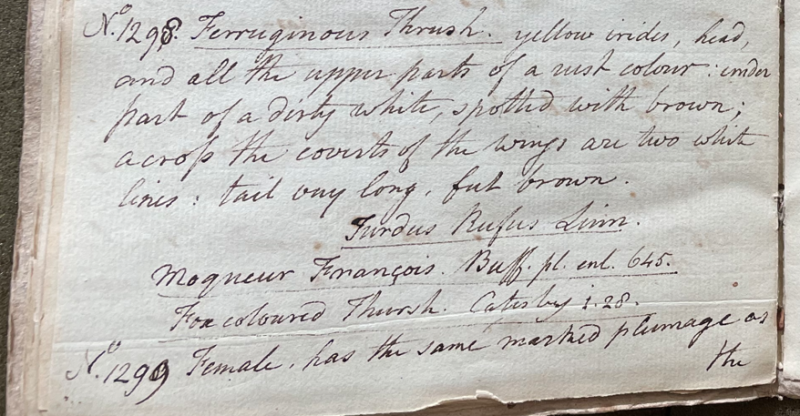 No. 1298. Ferruginous Thrush. yellow irides, head,
and all the upper parts of a rust colour: under
part of a dirty white, spotted with brown;
across the coverts of the wings are two white
lines: tail very long, feet brown.
Turdus Rufus Linn.
Moqueur François. Buff. pl. enl. 645.
Fox coloured Thursh. Catesby 1.28.
No. 1299 Female. has the same marked plumage as
the